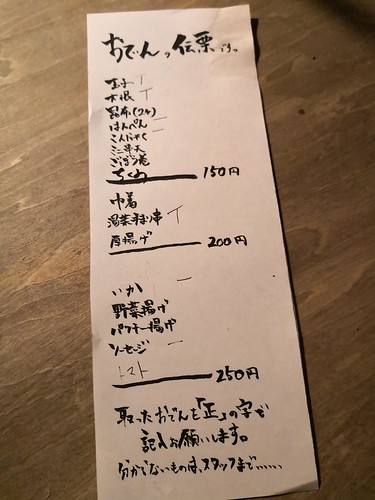 おでんの伝票です。
玉子 丅
大根 丅
昆布(2ケ)
はんぺん 一
こんにゃく 一
ミニ平天
ごぼう巻
ちくわ 150円
巾着
湯葉串 丅
厚揚げ 200円
いか 一
野菜揚げ
パクチー揚げ
ソーセージ 一
トマト 250円
取ったおでんを「正」の字で
記入お願いします。
分からないものは、スタッフまで……